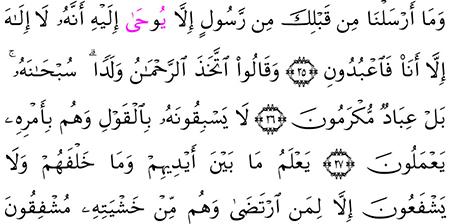 وَمَا أَرْسَلْنَا مِن قَبْلِكَ مِن رَّسُولٍ إِلَّا يُوحَىٰ إِلَيْهِ أَنَّهُۥ لَا إِلَـٰهَ
إِلَّا أَنَا۠ فَٱعْبُدُونِ ﴿٢٥﴾ وَقَالُوا۟ ٱتَّخَذَ ٱلرَّحْمَـٰنُ وَلَدًا ۗ سُبْحَـٰنَهُۥ ۚ
بَلْ عِبَادٌ مُّكْرَمُونَ ﴿٢٦﴾ لَا يَسْبِقُونَهُۥ بِٱلْقَوْلِ وَهُم بِأَمْرِهِۦ
يَعْمَلُونَ ﴿٢٧﴾ يَعْلَمُ مَا بَيْنَ أَيْدِيهِمْ وَمَا خَلْفَهُمْ وَلَا
يَشْفَعُونَ إِلَّا لِمَنِ ٱرْتَضَىٰ وَهُم مِّنْ خَشْيَتِهِۦ مُشْفِقُونَ